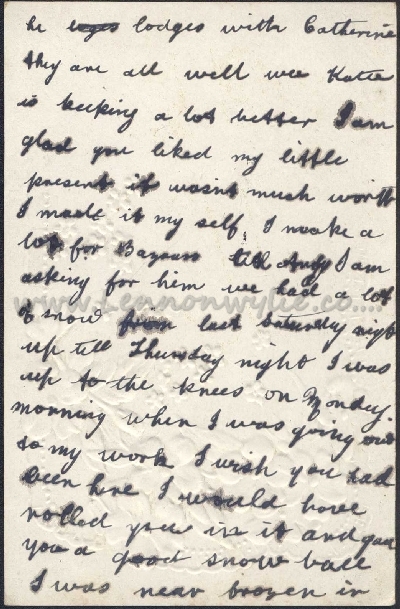 he lodges with Catherine
they are all well wee Katie
is keeping a lot better I am
glad you liked my little
present it wasnt much worth
I made it my self, I make a
lot for till Andy I am
asking for him we had a lot
www.Lennonwylie.co....
of snow from last Saturday night
up till Thursday night I was
up to the knees on Monday
morning when I was going out
to my work I wish you had
been here I would have
rolled you in it and gave
you a good snow ball
I was near frozen in